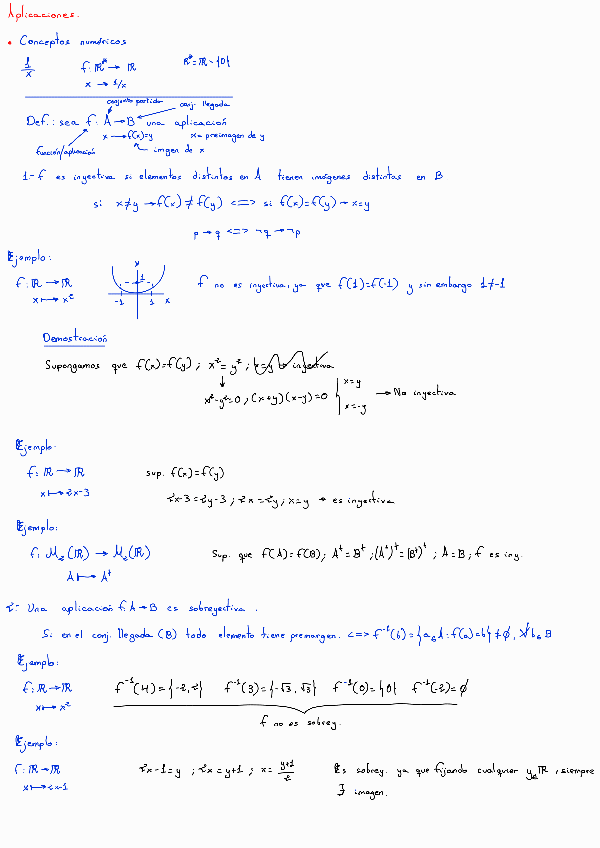 Aplicaciones.
• Conceptos numéricos
1/x f: ℝ* → ℝ ℝ* = ℝ - {0}
x → 1/x
conjunto partida conj. llegada
Def.: sea f: A → B una aplicación
x → f(x)=y x = preimagen de y
función/aplicación imgen de x
1- f es inyectiva si elementos distintos en A tienen imágenes distintas en B
si x≠y → f(x) ≠ f(y) <=> si f(x)=f(y) → x=y
p → q <=> ¬q → ¬p
Ejemplo:
f: ℝ → ℝ f no es inyectiva, ya que f(1)=f(-1) y sin embargo 1≠-1
x ↦ x²
y
1
-1 1 x
Demostración
Supongamos que f(x)=f(y) ; x² = y² ; x=y → inyectiva
x²-y²=0 ; (x+y)(x-y)=0 { x=y
x=-y → No inyectiva
Ejemplo:
f: ℝ → ℝ sup. f(x)=f(y)
x ↦ 2x-3 2x-3=2y-3 ; 2x=2y ; x=y → es inyectiva
Ejemplo:
f: M₂(ℝ) → M₂(ℝ) Sup. que f(A)=f(B) ; Aᵗ = Bᵗ ; (Aᵗ)ᵗ = (Bᵗ)ᵗ ; A=B ; f es iny.
A ↦ Aᵗ
2- Una aplicación f: A→B es sobreyectiva.
Si en el conj. llegada (B) todo elemento tiene premargen. <=> f⁻¹(b) = {a∈A : f(a)=b} ≠ ∅, ∀b∈B
Ejemplo:
f: ℝ → ℝ f⁻¹(4) = {-2,2} f⁻¹(3) = {-√3, √3} f⁻¹(0) = {0} f⁻¹(-2) = ∅
x ↦ x²
f no es sobrey.
Ejemplo:
f: ℝ → ℝ 2x-1=y ; 2x=y+1 ; x = (y+1)/2 Es sobrey. ya que fijando cualquier y∈ℝ, siempre
x ↦ 2x-1 ∃ imagen.